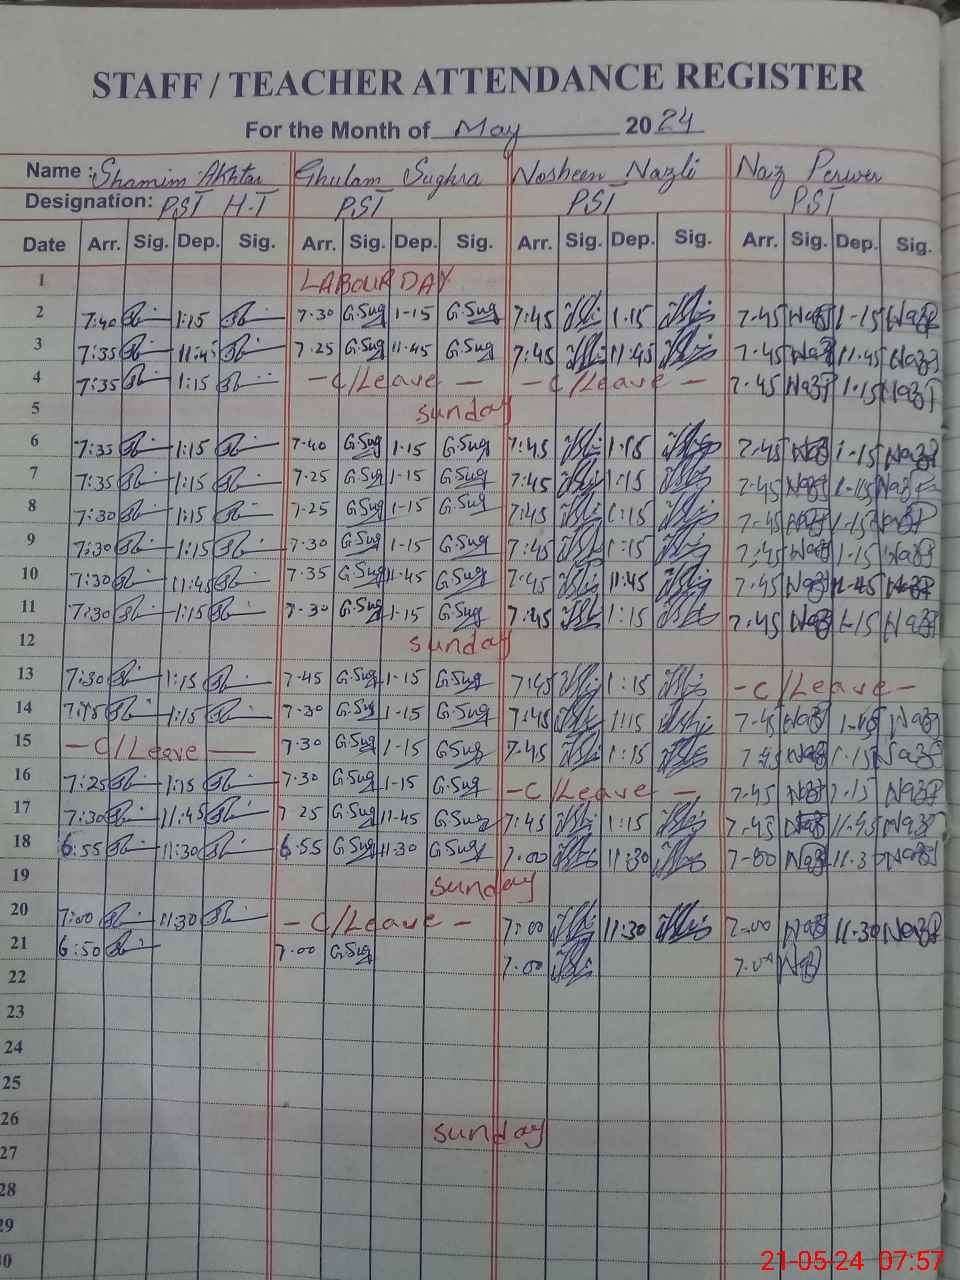 STAFF / TEACHER ATTENDANCE REGISTER
For the Month of May 2024
Name : Shamim Akhtar Ghulam Sughra Nosheen Nazli Naz Perwer
Designation: PST H.T PST PST PST
Date Arr. Sig. Dep. Sig. Arr. Sig. Dep. Sig. Arr. Sig. Dep. Sig. Arr. Sig. Dep. Sig.
1 LABOUR DAY
2 7:40 1:15 7.30 G.Sug 1-15 G.Sug 7:45 1.15 7.45 1-15
3 7:35 11:45 7.25 G.Sug 11.45 G.Sug 7:45 11:45 7.45 11.45
4 7:35 1:15 - C/Leave - - C/Leave - 7.45 1.15
5 sunday
6 7:35 1:15 7.40 G.Sug 1-15 G.Sug 7:45 1:15 7.45 1-15
7 7:35 1:15 7.25 G.Sug 1-15 G.Sug 7:45 1:15 7.45 1-15
8 7:30 1:15 7.25 G.Sug 1-15 G.Sug 7:45 1:15 7.45 1-15
9 7:30 1:15 7.30 G.Sug 1-15 G.Sug 7:45 1:15 7.45 1-15
10 7:30 11:45 7.35 G.Sug 11-45 G.Sug 7:45 11:45 7.45 11-45
11 7:30 1:15 7.30 G.Sug 1-15 G.Sug 7:45 1:15 7.45 1-15
12 sunday
13 7:30 1:15 7.45 G.Sug 1-15 G.Sug 7:45 1:15 - C/Leave -
14 1:15 7.30 G.Sug 1-15 G.Sug 7:45 1:15 7.45
15 - C/Leave - 7.30 G.Sug 1-15 G.Sug 7.45 1:15 7.45 1.15
16 7:25 1:15 7.30 G.Sug 1-15 G.Sug - C/Leave - 7.45 1.15
17 7:30 11:45 7.25 G.Sug 11-45 G.Sug 7:45 1:15 7.45 11.45
18 6:55 11:30 6.55 G.Sug 11-30 G.Sug 7.00 11:30 7-00 11.30
19 sunday
20 7:00 11:30 - C/Leave - 7:00 11:30 7.00 11.30
21 6:50 7.00 G.Sug 7.00 7.00
22
23
24
25
26 sunday
27
28
29
30
21-05-24 07:57